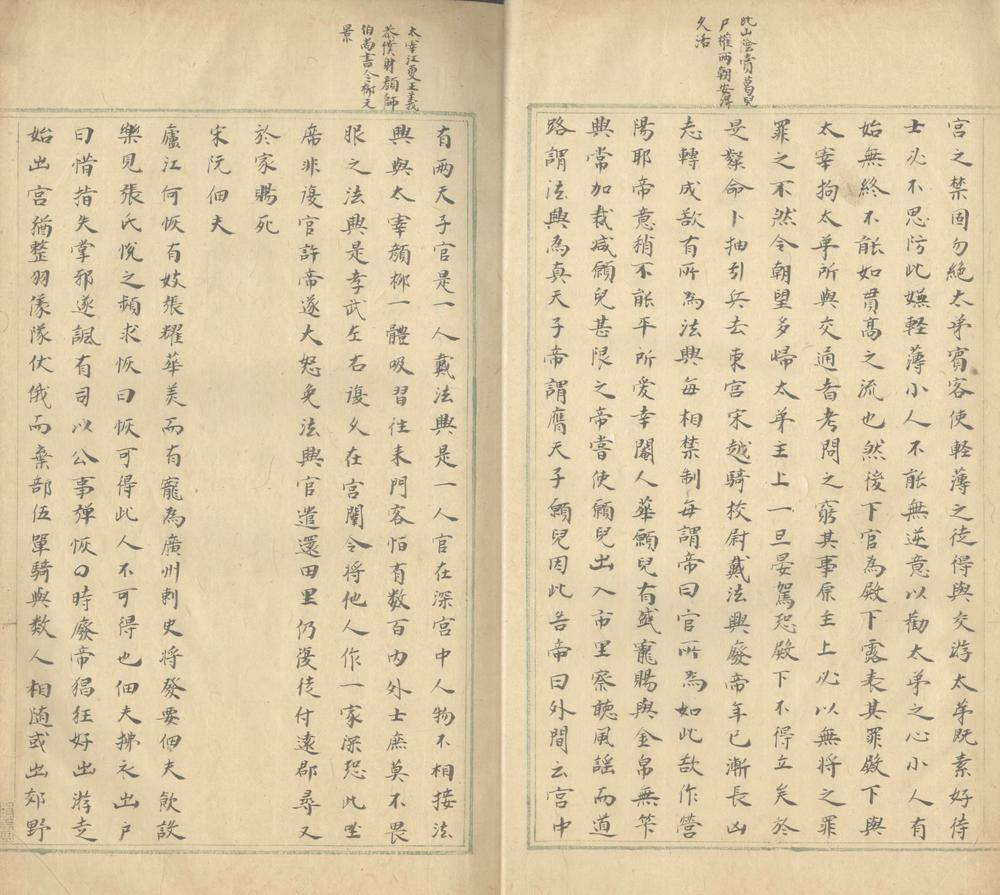 此山陰責蒭兒
尸權兩朝安得
久活
宮之禁固勿絕太弟賓客使輕薄之徒得與交游太弟既素好待
士必不思防此嫌輕薄小人不能無逆意以勸太弟之心小人有
始無終不能如貫高之流也然後下官為殿下露表其罪殿下與
太宰拘太弟所與交通者考問之窮其事原主上必以無將之罪
罪之不然今朝望多歸太弟主上一旦晏駕恐殿下不得立矣於
是粲命卜抽引兵去東宮宋越騎校尉戴法興廢帝年已漸長凶
志轉成欲有所為法興每相禁制每謂帝曰官所為如此欲作營
陽耶帝意稍不能平所愛幸閹人華願兒有盛寵賜與金帛無筭
興常加裁減願兒甚限之帝嘗使願兒出入市里察聽風謠而道
路謂法興為真天子帝謂贗天子願兒因此告帝曰外間云宮中
太宰江夏王義
恭僕射顏師
伯尚書令柳元
景
有兩天子官是一人戴法興是一人官在深宮中人物不相接法
興與太宰顏柳一體吸習往来門客怕有数百內外士庶莫不畏
服之法興是孝武左右復久在宮闈今將他人作一家深恐此坐
席非復官許帝遂大怒免法興官遣還田里仍復徒付遠郡尋又
於家賜死
宋阮佃夫
廬江何恢有妓張耀華美而有寵為廣州刺史將發要佃夫飲設
樂見張氏悅之頻求恢曰恢可得此人不可得也佃夫拂衣出户
曰惜指失掌邪遂諷有司以公事彈恢〇時廢帝猖狂好出游走
始出宮猶整羽儀隊伏俄而棄部伍單騎與数人相随或出郊野